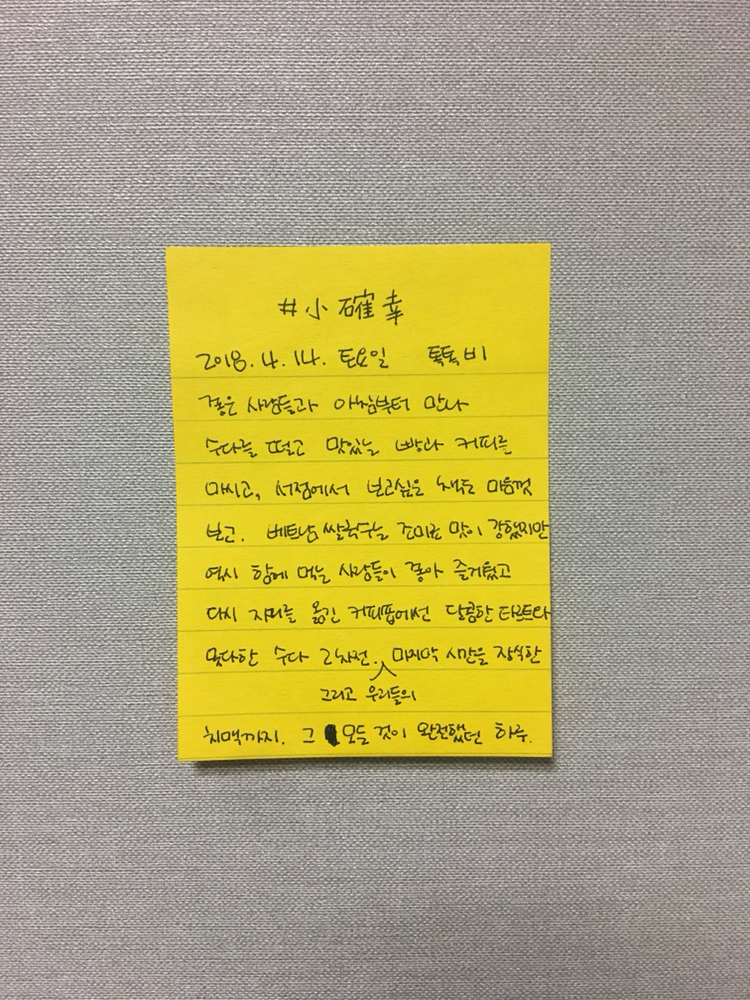 #小確幸
2018.4.14. 토요일 톡톡비
좋은 사람들과 아침부터 만나
수다를 떨고 맛있는 빵과 커피를
마시고, 서점에서 보고싶은 책도 마음껏
보고. 베트남 쌀국수는 조미료 맛이 강했지만
역시 함께 먹는 사람들이 좋아 즐거웠고
다시 자리를 옮긴 커피숍에선 달콤한 타르트와
못다한 수다 2차전. 마지막 시간을 장식한
그리고 우리들의
치맥까지. 그 모든 것이 완전했던 하루.